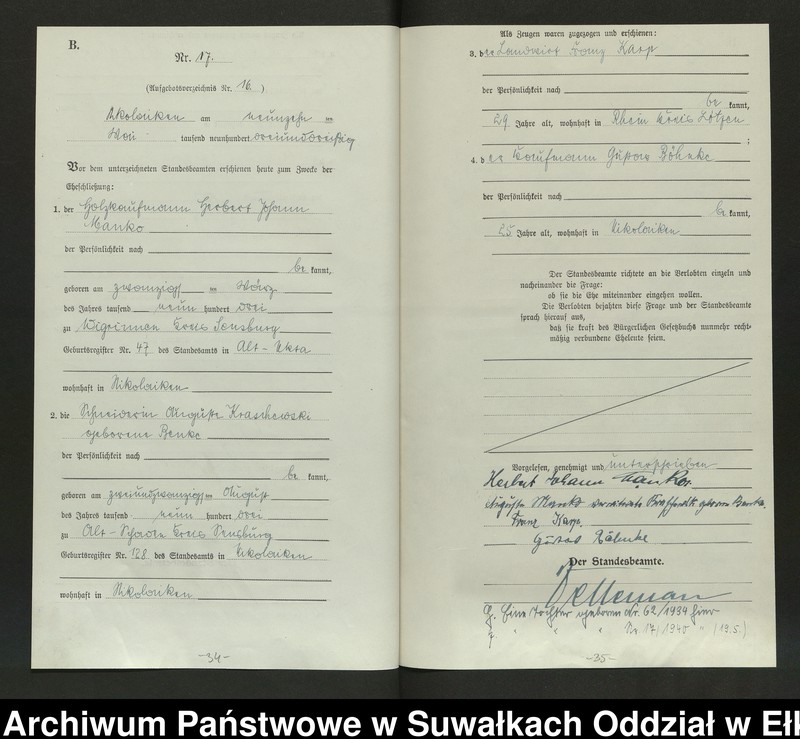 B.
Nr. 17.
(Aufgebotsverzeichnis Nr. 16.)
Nikolaiken am neunzehn ten
Mai tausend neunhundert dreiunddreißig
Vor dem unterzeichneten Standesbeamten erschienen heute zum Zwecke der
Eheschließung:
1. der Holzkaufmann Herbert Johann
Manko
der Persönlichkeit nach
be kannt,
geboren am zwanzigsten März
des Jahres tausend neun hundert drei
zu Wigrinnen Kreis Sensburg
Geburtsregister Nr. 47 des Standesamts in Alt-Ukta
wohnhaft in Nikolaiken
2. die Schneiderin Auguste Kraschewski
geborene Benke
der Persönlichkeit nach
be kannt,
geboren am zweiundzwanzigsten August
des Jahres tausend neun hundert drei
zu Alt-Schaden Kreis Sensburg
Geburtsregister Nr. 128 des Standesamts in Nikolaiken
wohnhaft in Nikolaiken
-34-
Als Zeugen waren zugezogen und erschienen:
3. der Landwirt Franz Karp
der Persönlichkeit nach
be kannt,
29 Jahre alt, wohnhaft in Rhein Kreis Lötzen
;
4. der Kaufmann Gustav Böhnke
der Persönlichkeit nach
be kannt,
25 Jahre alt, wohnhaft in Nikolaiken
Der Standesbeamte richtete an die Verlobten einzeln und
nacheinander die Frage:
ob sie die Ehe miteinander eingehen wollen.
Die Verlobten bejahten diese Frage und der Standesbeamte
sprach hierauf aus,
daß sie kraft des Bürgerlichen Gesetzbuchs nunmehr recht-
mäßig verbundene Eheleute seien.
Vorgelesen, genehmigt und unterschrieben
Herbert Johann Manko.
Auguste Manko geborene Benke.
Franz Karp.
Gustav Böhnke
Der Standesbeamte.
G. Eine Tochter geboren Nr. 62/1934 hier
" " " Nr. 17/1940 " (19.5.)
-35-
Archiwum Państwowe w Suwałkach Oddział w Ełk